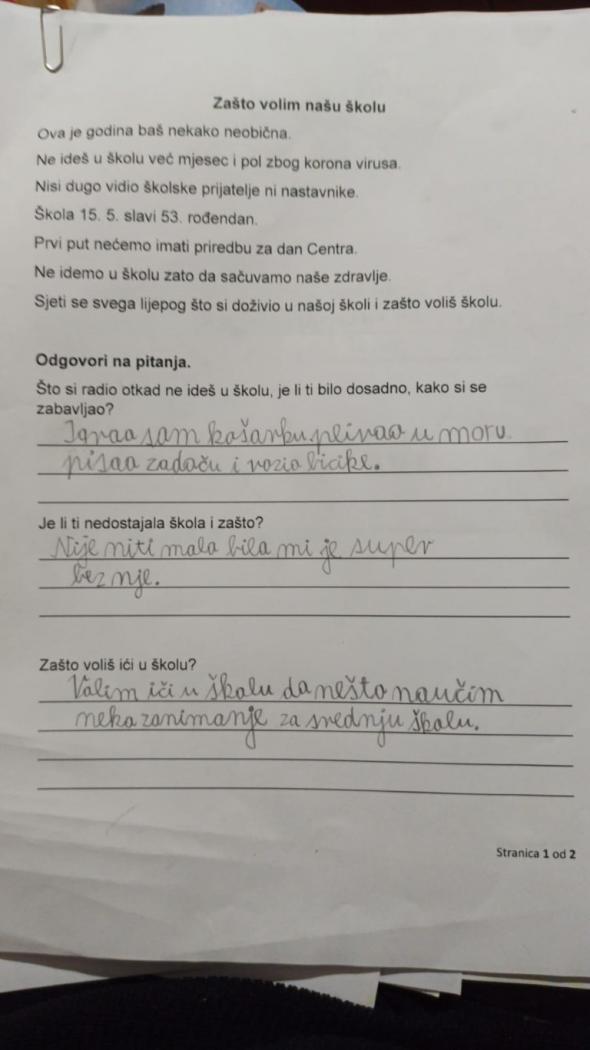 Zašto volim našu školu
Ova je godina baš nekako neobična.
Ne ideš u školu već mjesec i pol zbog korona virusa.
Nisi dugo vidio školske prijatelje ni nastavnike.
Škola 15. 5. slavi 53. rođendan.
Prvi put nećemo imati priredbu za dan Centra.
Ne idemo u školu zato da sačuvamo naše zdravlje.
Sjeti se svega lijepog što si doživio u našoj školi i zašto voliš školu.
Odgovori na pitanja.
Što si radio otkad ne ideš u školu, je li ti bilo dosadno, kako si se
zabavljao?
Igrao sam košarku, plivao u moru
pisao zadaču i vozio bicike.
Je li ti nedostajala škola i zašto?
Nije niti malo bilo mi je super
bez nje.
Zašto voliš ići u školu?
Volim iči u školu da nešto naučim
neko zanimanje za srednju školu.
Stranica 1 od 2